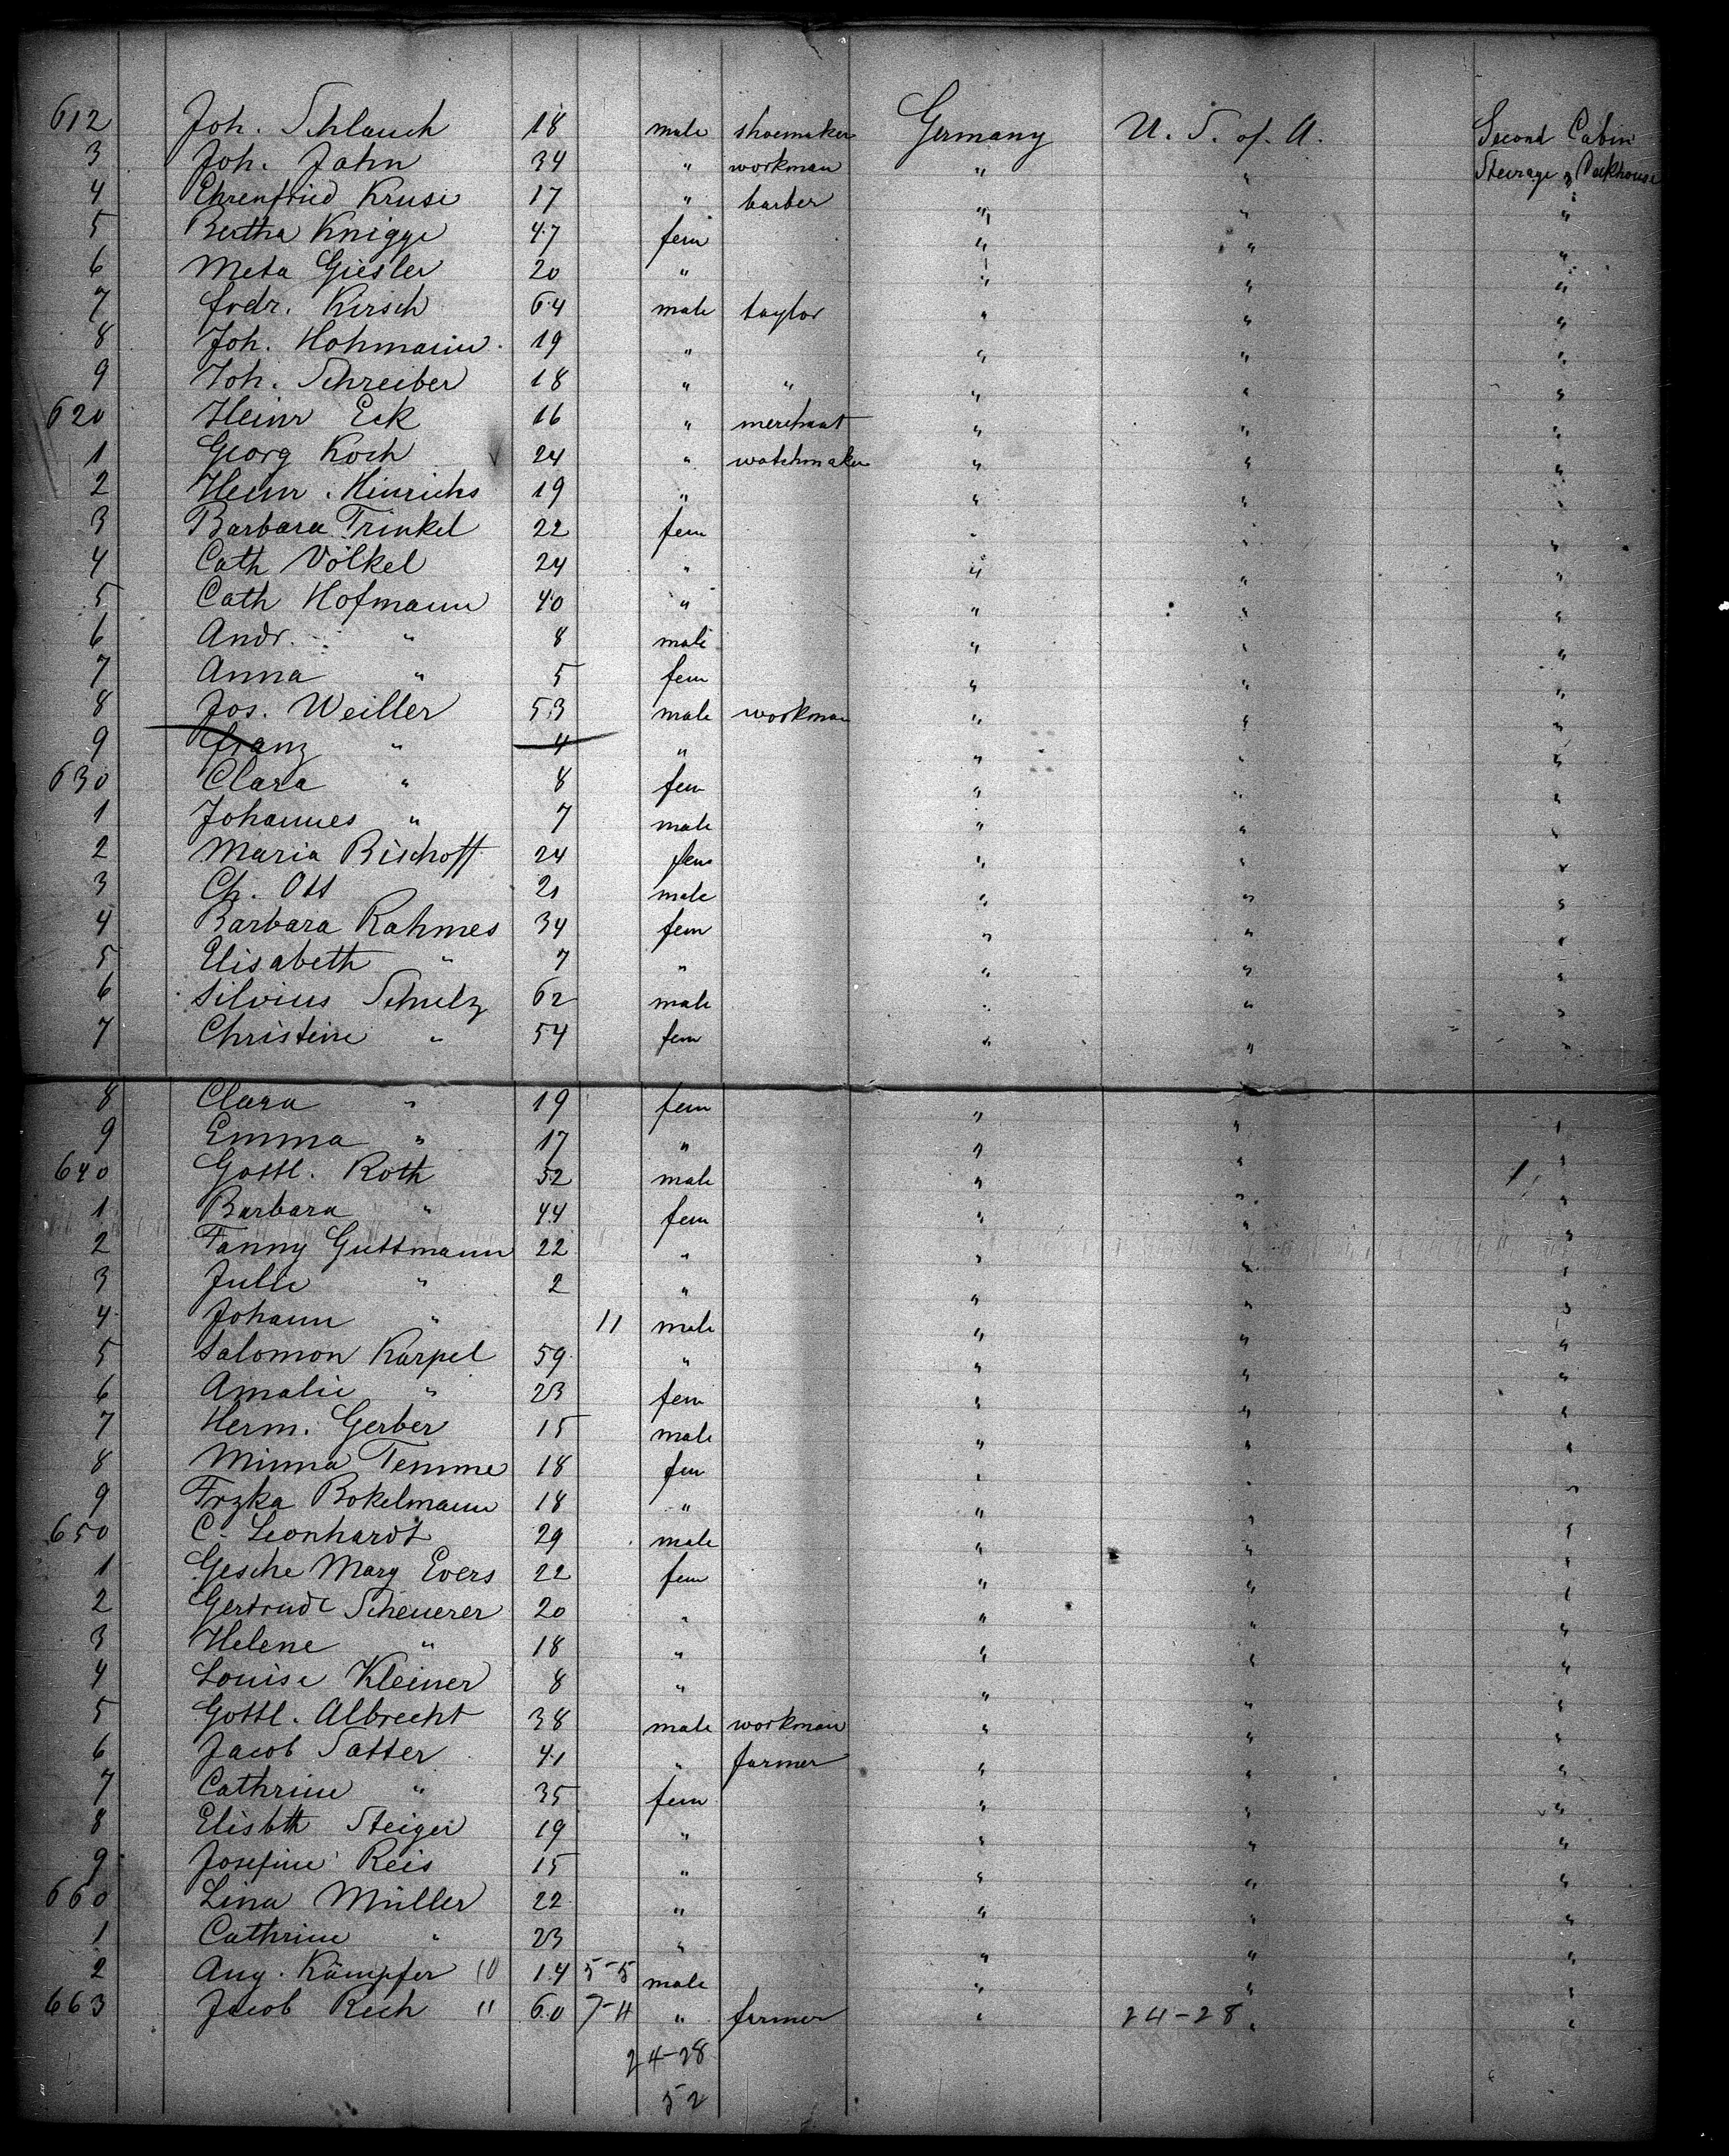 612 Joh. Schlauch 18 male shoemaker Germany U. S. of. A. Second Cabin
3 Joh. Jahn 34 " workman " " Steerage, Deckhouse
4 Ehrenfried Kruse 17 " barber " " "
5 Bertha Knigge 47 fem " " "
6 Meta Giesler 20 " " " "
7 Frdr. Kirsch 64 male taylor " " "
8 Joh. Hohmann 19 " " " "
9 Joh. Schreiber 18 " " " " "
620 Heinr Eck 16 " merchant " " "
1 Georg Koch 24 " watchmaker " " "
2 Heinr. Hinrichs 19 " " " "
3 Barbara Trinkel 22 fem " " "
4 Cath Völkel 24 " " " "
5 Cath Hofmann 40 " " " "
6 Andr. " 8 male " " "
7 Anna " 5 fem " " "
8 Jos. Weiller 53 male workman " " "
9 Franz " 4 " " " "
630 Clara " 8 fem " " "
1 Johannes " 7 male " " "
2 Maria Bischoff 24 fem " " "
3 Ch. Ott 21 male " " "
4 Barbara Rahmes 34 fem " " "
5 Elisabeth " 7 " " " "
6 Silvius Schulz 62 male " " "
7 Christine " 54 fem " " "
8 Clara " 19 fem " " "
9 Emma " 17 " " " "
640 Gottl. Roth 52 male " " "
1 Barbara " 44 fem " " "
2 Fanny Guttmann 22 " " " "
3 Julie " 2 " " " "
4 Johann " 11 male " " "
5 Salomon Karpel 59 " " " "
6 Amalie " 23 fem " " "
7 Herm. Gerber 15 male " " "
8 Minna Temme 18 fem " " "
9 Frzka Bokelmann 18 " " " "
650 C. Leonhardt 29 male " " "
1 Gesche Marg Evers 22 fem " " "
2 Gertrude Scheuerer 20 " " " "
3 Helene " 18 " " " "
4 Louise Kleiner 8 " " " "
5 Gottl. Albrecht 38 male workman " " "
6 Jacob Satter 41 " farmer " " "
7 Cathrine " 35 fem " " "
8 Elisbth Steiger 19 " " " "
9 Josefine Reis 15 " " " "
660 Lina Müller 22 " " " "
1 Cathrine " 23 " " " "
2 Aug. Kämpfer 10 14 5-5 male " " "
663 Jacob Rech 11 60 7-4 " farmer " 24-28 " "
24-28
52